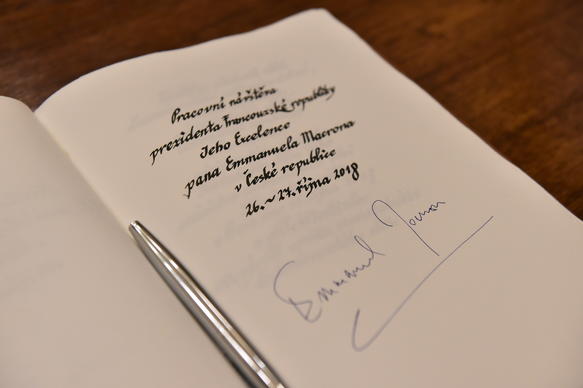 Pracovní návštěva
prezidenta Francouzské republiky
Jeho Excelence
pana Emmanuela Macrona
v České republice
26. ~ 27. října 2018
Emmanuel Macron